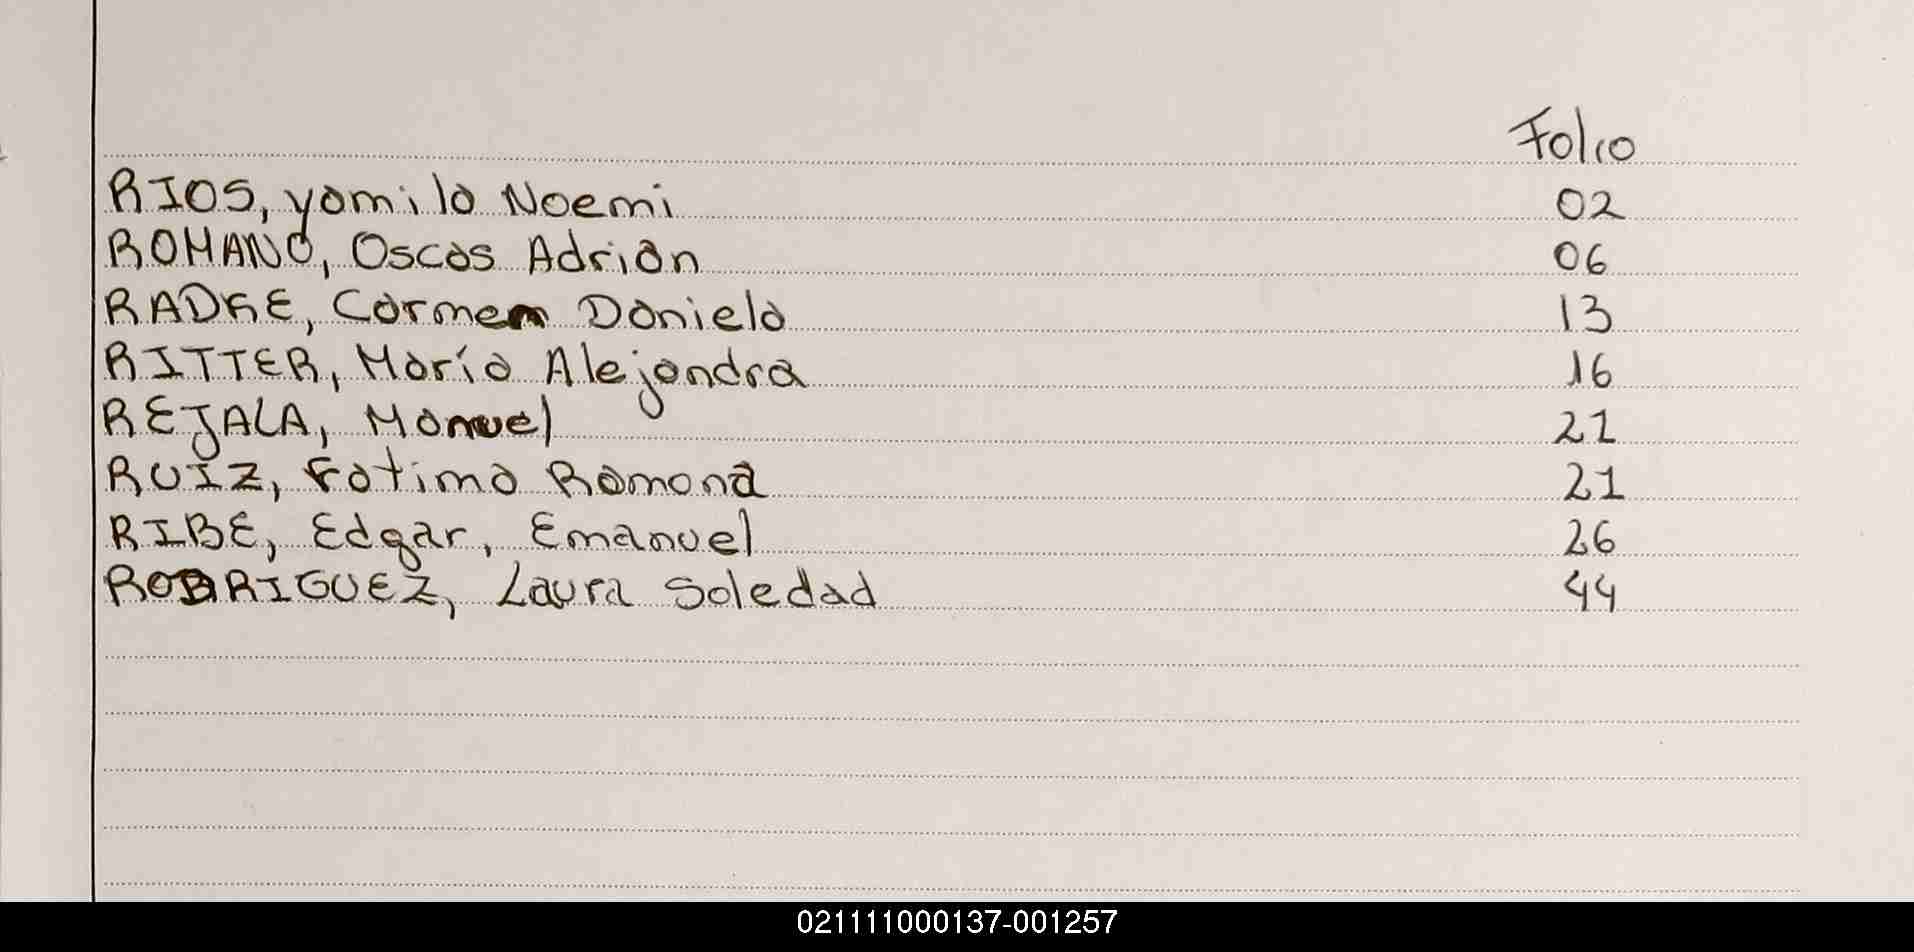 Folio
RIOS, yamila Noemi 02
ROMANO, Oscas Adrian 06
RADKE, Carmen Daniela 13
RITTER, María Alejandra 16
REJALA, Manuel 21
RUIZ, Fatima Ramona 21
RIBE, Edgar, Emanuel 26
RODRIGUEZ, Laura Soledad 44
021111000137-001257